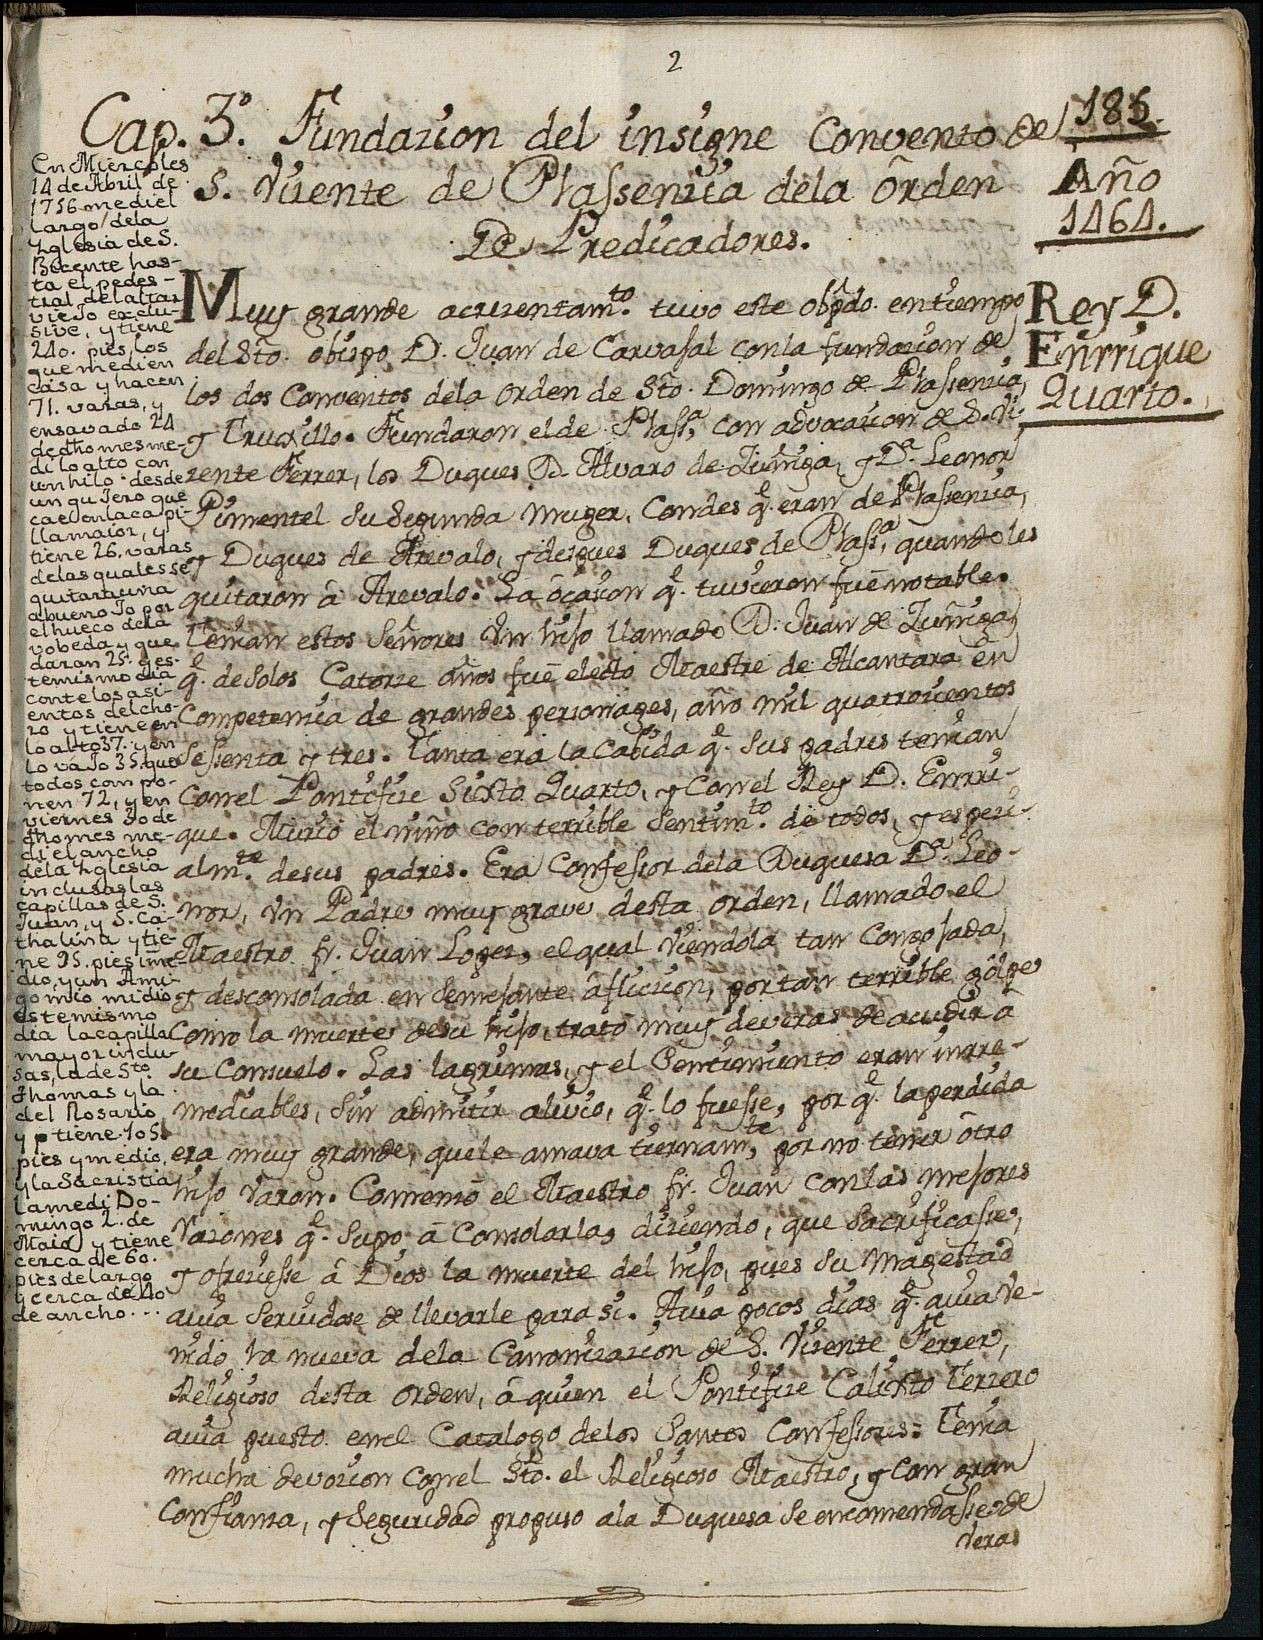 2
Cap. 3.º Fundazion del insigne Convento de
S. Vizente de Plassenzia dela Orden
De Predicadores.
185.
Año
1464.
Rey D.
Enrrique
Quarto.
En Miercoles
14 de Abril de
1756 medi el
largo dela
Yglesia de S.
Bicente has-
ta el pedes-
tral del altar
viejo exclu-
sive, y tiene
240. pies, los
que medi en
casa y hacen
71. varas, y
en savado 24
de dho mes me-
di lo alto con
un hilo desde
un gujero que
cae en la capi-
lla maior, y
tiene 26. varas
delas quales se
quitará una
abueno Jo por
el hueco dela
vobeda y que
daran 25. y es-
te mismo dia
conte los asi-
entos del cho-
ro y tiene en
lo alto 37. y en
lo vajo 35. que
todos compo-
nen 72, y en
viernes 30 de
dho mes me-
di el ancho
dela Yglesia
inclusas las
capillas de S.
Juan, y S. Ca-
thalina y tie-
ne 95. pies i me
dio, y un Ami-
go mio midio
este mismo
dia la capilla
mayor inclu-
sas, la de Sto.
Thomas y la
del Rosario
y tiene 105
pies y medio,
y la Sacristia
la medi Do-
mingo 2. de
Maio y tiene
cerca de 60.
pies de largo
y cerca de 40
de ancho...
Muy grande acrezentam.to tuvo este obpdo. en tiempo
del Sto. obispo D. Juan de Carvajal con la fundazion de
los dos Conventos dela Orden de Sto. Domingo de Plassenzia,
y Truxillo. Fundaron el de Plass.ª con advocazion de S. Vi-
zente Ferrer, los Duques D. Alvaro de Zuñiga, y D.ª Leonor
Pimentel su segunda muger, Condes q.e eran de Plassenzia,
y Duques de Arevalo, y despues Duques de Plass.ª, quando les
quitaron à Arevalo. La ocasion q.e tuvieron fué notable.
Tenian estos Señores Un hijo llamado D. Juan de Zuñiga,
q.e de solos Catorze años fué electo Maestre de Alcantara en
Competenzia de grandes personages, año mil quatrozientos
sessenta y tres. Tanta era la Cabida q.e sus padres tenian
con el Pontifize Sixto Quarto, y con el Rey D. Enrri-
que. Murió el niño con terrible sentim.to de todos, y espezi-
alm.te de sus padres. Era Confessor dela Duquesa D.ª Leo-
nor, Un Padre muy grave desta Orden, llamado el
Maestro fr. Juan Lopez, el qual viendola tan Congojada,
y desconsolada en semejante afliczion, por tan terrible golpe
Como la muerte de su hijo, trató muy de veras de acudir à
su Consuelo. Las lagrimas, y el sentimiento eran inrre-
mediables, sin admitir alivio, q.e lo fuesse, por q.e la perdida
era muy grande, que le amava tiernam.te, por no tener otro
hijo Varon. Comenzó el Maestro fr. Juan con las mejores
razones q.e supo à Consolarla, diziendo, que sacrificasse,
y ofreziesse à Dios la muerte del hijo, pues su Magestad
avia servidose de llevarle para si. Avia pocos dias q.e avia ve-
nido la nueva dela Canonizazion de S. Vizente Ferrer,
Religioso desta Orden, à quien el Pontifize Calixto Terzero
avia puesto en el Catalogo delos Santos Confessores: Tenia
mucha devozion con el Sto. el Religioso Maestro, y con gran
Confianza, y seguridad propuso a la Duquesa se encomendasse de
veras